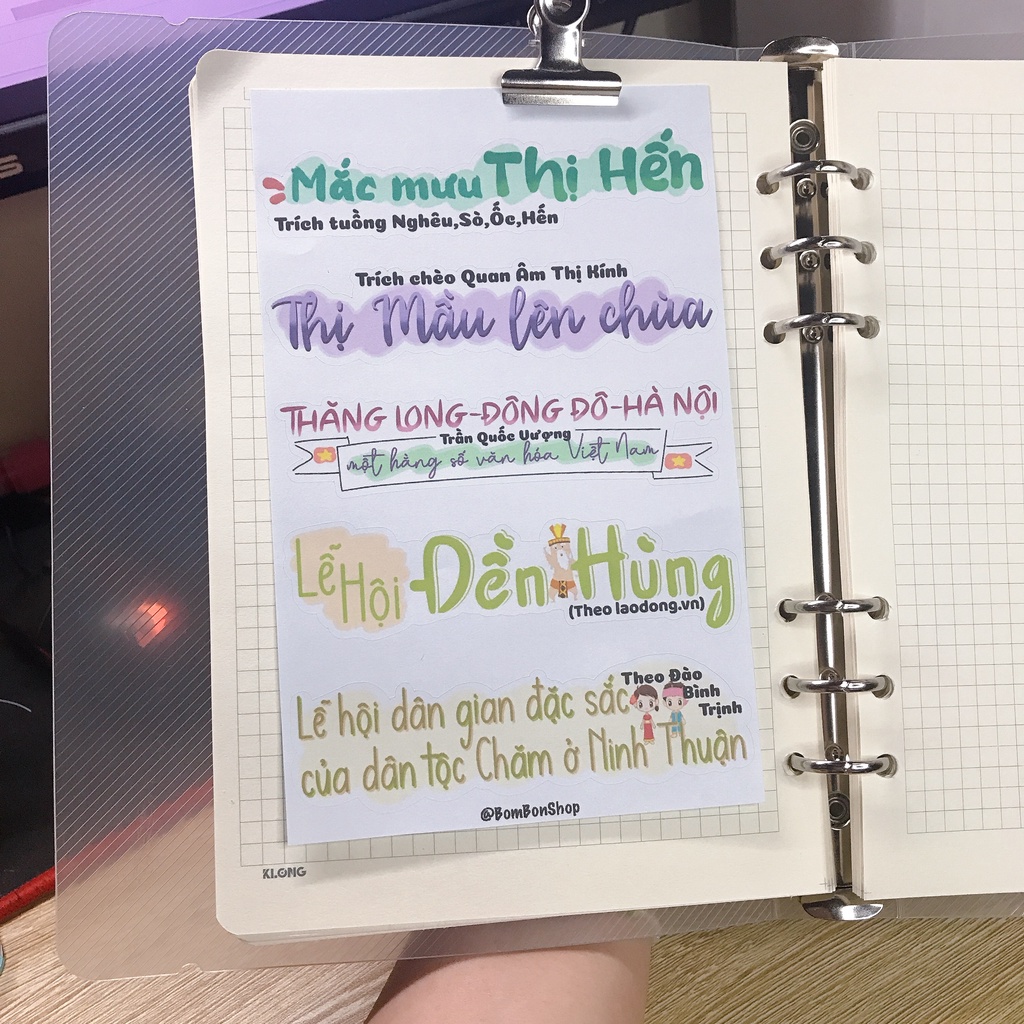 Mắc mưu Thị Hến
Trích tuồng Nghêu,Sò,Ốc,Hến
Trích chèo Quan Âm Thị Kính
Thị Mầu lên chùa
THĂNG LONG-ĐÔNG ĐÔ-HÀ NỘI
Trần Quốc Vượng
một hằng số văn hóa Việt Nam
Lễ Hội Đền Hùng
(Theo laodong.vn)
Theo Đào
Bình
Trịnh
Lễ hội dân gian đặc sắc
của dân tộc Chăm ở Ninh Thuận
@BomBonShop
KLONG